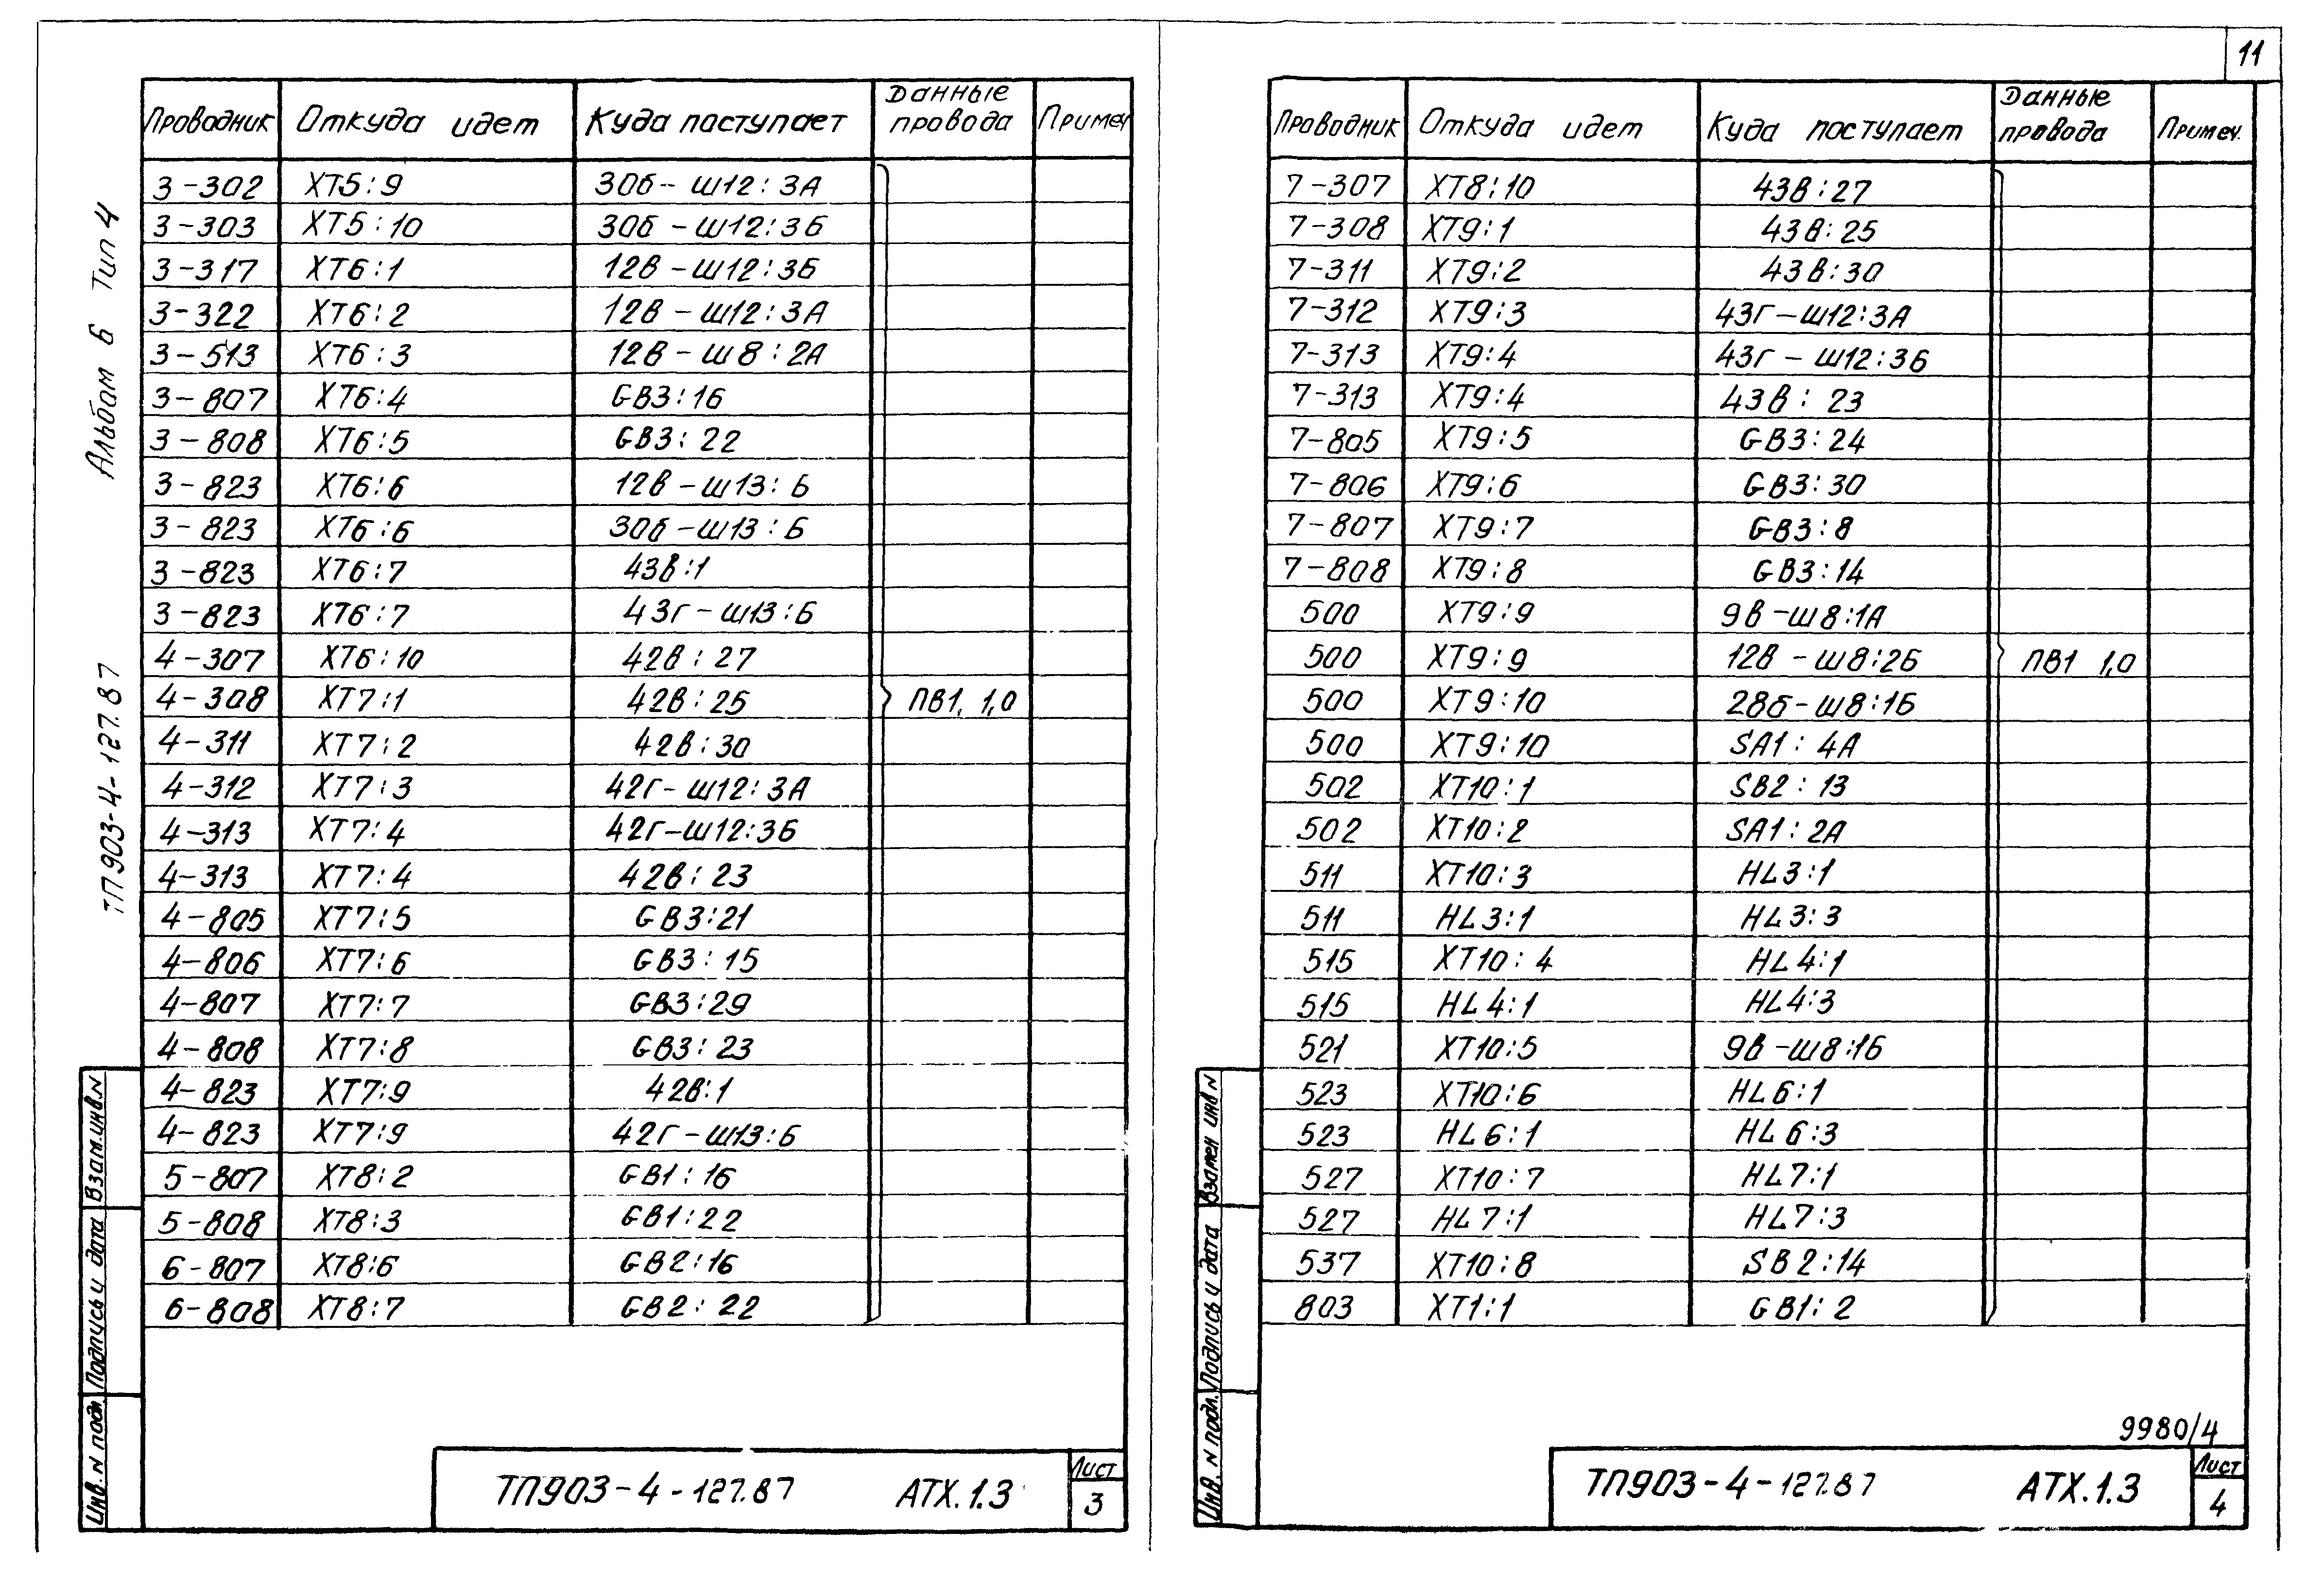 11
Альбом 6 Тип 4
ТП903-4-127.87
Проводник Откуда идет Куда поступает Данные провода Примеч
3-302 ХТ5:9 30б-Ш12:3А
3-303 ХТ5:10 30б-Ш12:3Б
3-317 ХТ6:1 12В-Ш12:3Б
3-322 ХТ6:2 12В-Ш12:3А
3-513 ХТ6:3 12В-Ш8:2А
3-807 ХТ6:4 GB3:16
3-808 ХТ6:5 GB3:22
3-823 ХТ6:6 12В-Ш13:Б
3-823 ХТ6:6 30б-Ш13:Б
3-823 ХТ6:7 43В:1
3-823 ХТ6:7 43Г-Ш13:Б
4-307 ХТ6:10 42В:27
4-308 ХТ7:1 42В:25 ПВ1, 1,0
4-311 ХТ7:2 42В:30
4-312 ХТ7:3 42Г-Ш12:3А
4-313 ХТ7:4 42Г-Ш12:3Б
4-313 ХТ7:4 42В:23
4-805 ХТ7:5 GB3:21
4-806 ХТ7:6 GB3:15
4-807 ХТ7:7 GB3:29
4-808 ХТ7:8 GB3:23
4-823 ХТ7:9 42В:1
4-823 ХТ7:9 42Г-Ш13:Б
5-807 ХТ8:2 GB1:16
5-808 ХТ8:3 GB1:22
6-807 ХТ8:6 GB2:16
6-808 ХТ8:7 GB2:22
Взам.инв.N
Подпись и дата
Инв. N подл.
ТП903-4-127.87 АТХ.1.3
Лист
3
Проводник Откуда идет Куда поступает Данные провода Примеч.
7-307 ХТ8:10 43В:27
7-308 ХТ9:1 43В:25
7-311 ХТ9:2 43В:30
7-312 ХТ9:3 43Г-Ш12:3А
7-313 ХТ9:4 43Г-Ш12:3Б
7-313 ХТ9:4 43В:23
7-805 ХТ9:5 GB3:24
7-806 ХТ9:6 GB3:30
7-807 ХТ9:7 GB3:8
7-808 ХТ9:8 GB3:14
500 ХТ9:9 9В-Ш8:1А
500 ХТ9:9 12В-Ш8:2Б ПВ1 1,0
500 ХТ9:10 28б-Ш8:1Б
500 ХТ9:10 SA1:4А
502 ХТ10:1 SB2:13
502 ХТ10:2 SA1:2А
511 ХТ10:3 HL3:1
511 HL3:1 HL3:3
515 ХТ10:4 HL4:1
515 HL4:1 HL4:3
521 ХТ10:5 9В-Ш8:1Б
523 ХТ10:6 HL6:1
523 HL6:1 HL6:3
527 ХТ10:7 HL7:1
527 HL7:1 HL7:3
537 ХТ10:8 SB2:14
803 ХТ1:1 GB1:2
Взамен инв N
Подпись и дата
Инв. N подл.
9980/4
ТП903-4-127.87 АТХ.1.3
Лист
4